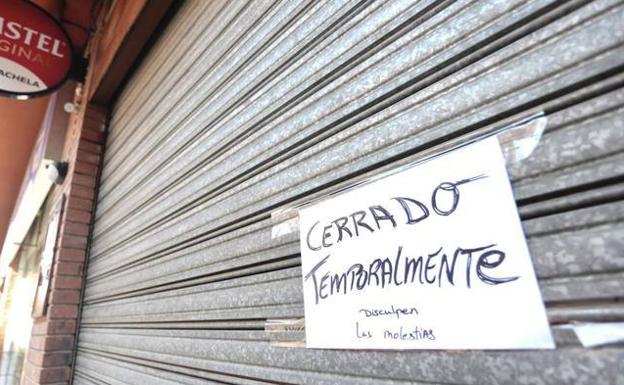 MSTEL
RIGINAL
ACHELA
CERRADO
TEMPORALMENTE
Disculpen
las molestias